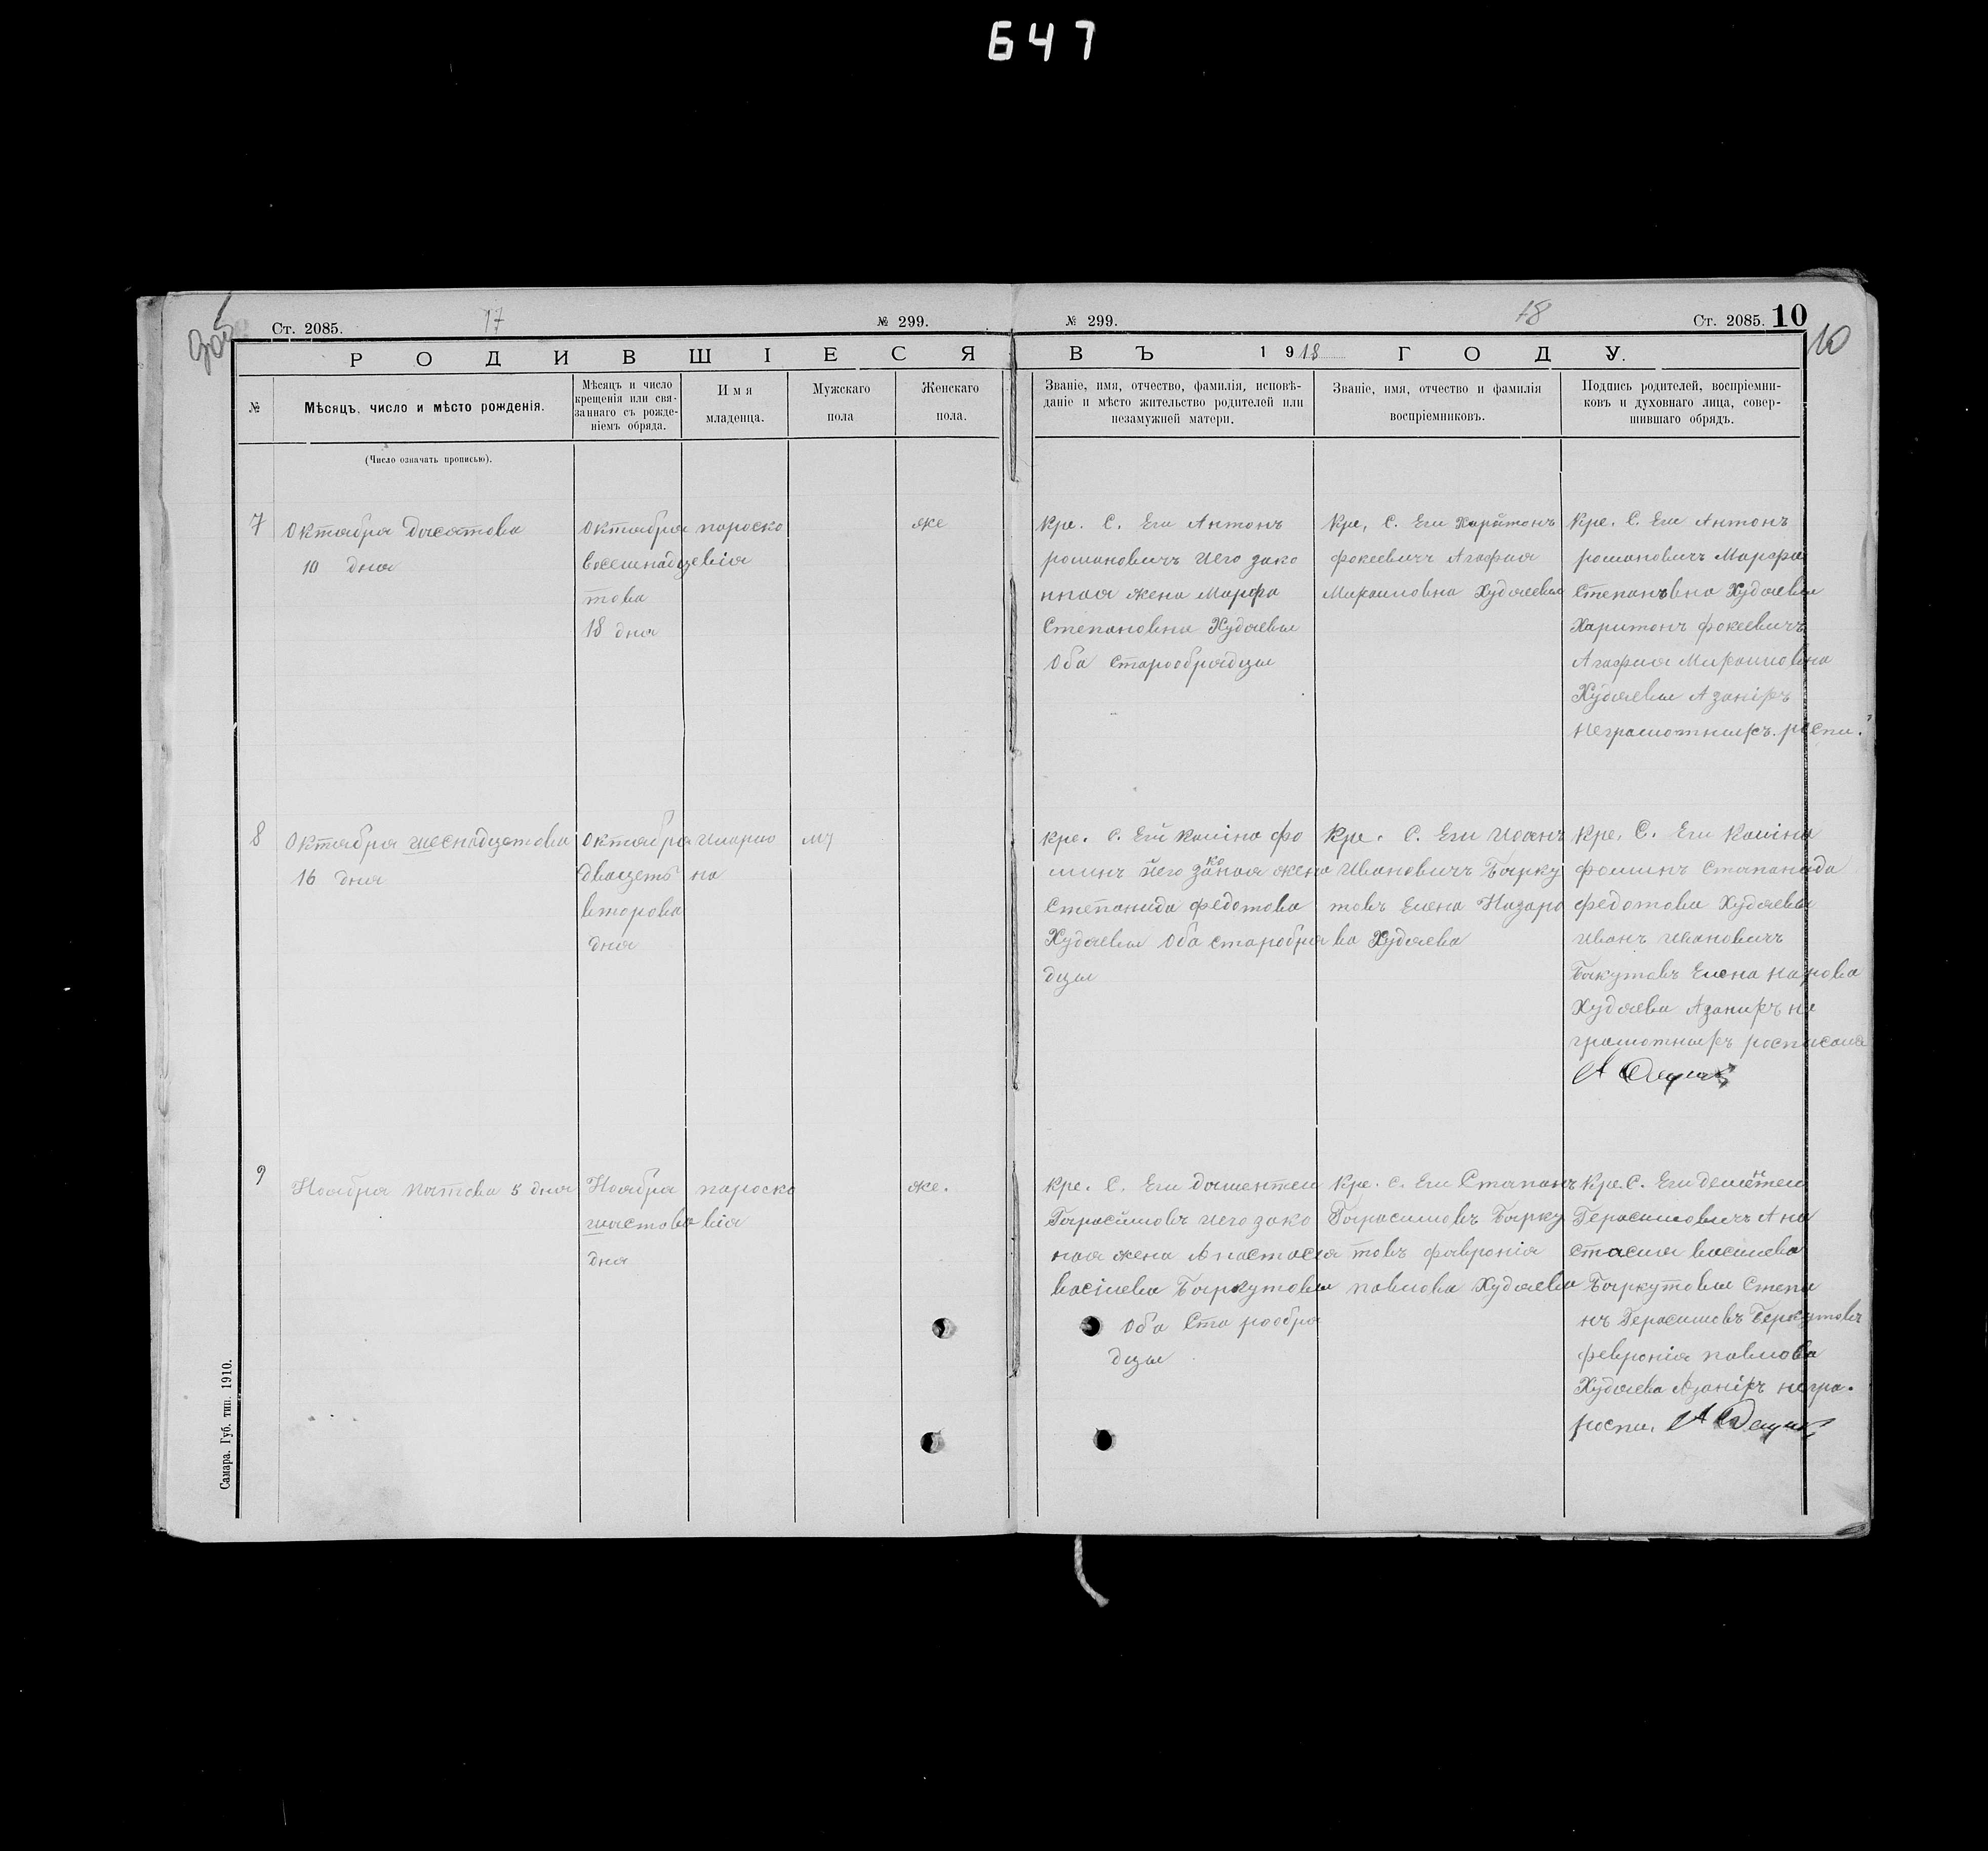 647
Ст. 2085.
17
№ 299.
№ 299.
18
Ст. 2085. 10
10
РОДИВШІЕСЯ
ВЪ 1918 ГОДУ.
№
Мѣсяцъ, число и мѣсто рожденія.
Мѣсяцъ и число
крещенія или свя-
заннаго съ рожде-
ніемъ обряда.
Имя
младенца.
Мужскаго
пола
Женскаго
пола.
Званіе, имя, отчество, фамилія, исповѣ-
даніе и мѣсто жительство родителей или
незамужней матери.
Званіе, имя, отчество и фамилія
воспріемниковъ.
Подпись родителей, воспріемни-
ковъ и духовнаго лица, совер-
шившаго обрядъ.
(Число означать прописью).
7
Октября Десятова
10 дня
Октября
Восемнадце
това
18 дня
пароско
вія
же
Кре. С. Ели Антонъ
романовичъ Иего зако
нная жена Марфа
Степановна Худяевы
Оба Старообрядцы
Кре, С. Ели Харитонъ
фокеевичъ Агафия
Михаиловна Худяевы
Кре. С. Ели Антонъ
романовичъ Марфа
Степановна Худяевы
Харитонъ фокеевичъ
Агафия Михаиловна
Худяевы Азаніхъ
Неграмотныхъ. роспи.
8
Октября шеснадцетова
16 дня
Октября
Двацетъ
второва
дня
Иларио
на
му
кре. С. Ели Калина фо
минъ Иего законая жена
Степанида федотова
Худяевы Оба старобря
дцы
Кре. С. Ели Иоанъ
Ивановичъ Бярку
товъ Елена Назаро
ва Худяева
Кре. С. Ели Калина
фоминъ Степанида
федотова Худяевы
Иванъ Ивановичъ
Бякутовъ Елена нарова
Худяева Азанихъ не
грамотныхъ росписался
9
Ноября Пятова 5 дня
Ноября
шастова
дня
пароско
вія
же.
Кре. С. Ели Дементеи
Гарасимовъ Иего зако
ная жена Анастасия
васілева Бяркутовы
Оба Старообря
дцы
Кре. С. Ели Степанъ
Гарасимовъ Бярку
товъ фавронія
павлова Худяева
Кре. С. Ели Деметеи
Герасимовичъ Ана
стасия василева
Бяркутовы Степа
нъ Герасимовъ Беркутовъ
февронія павлова
Худяева Азаніхъ негра.
роспи.
Самара. Губ. тип. 1910.